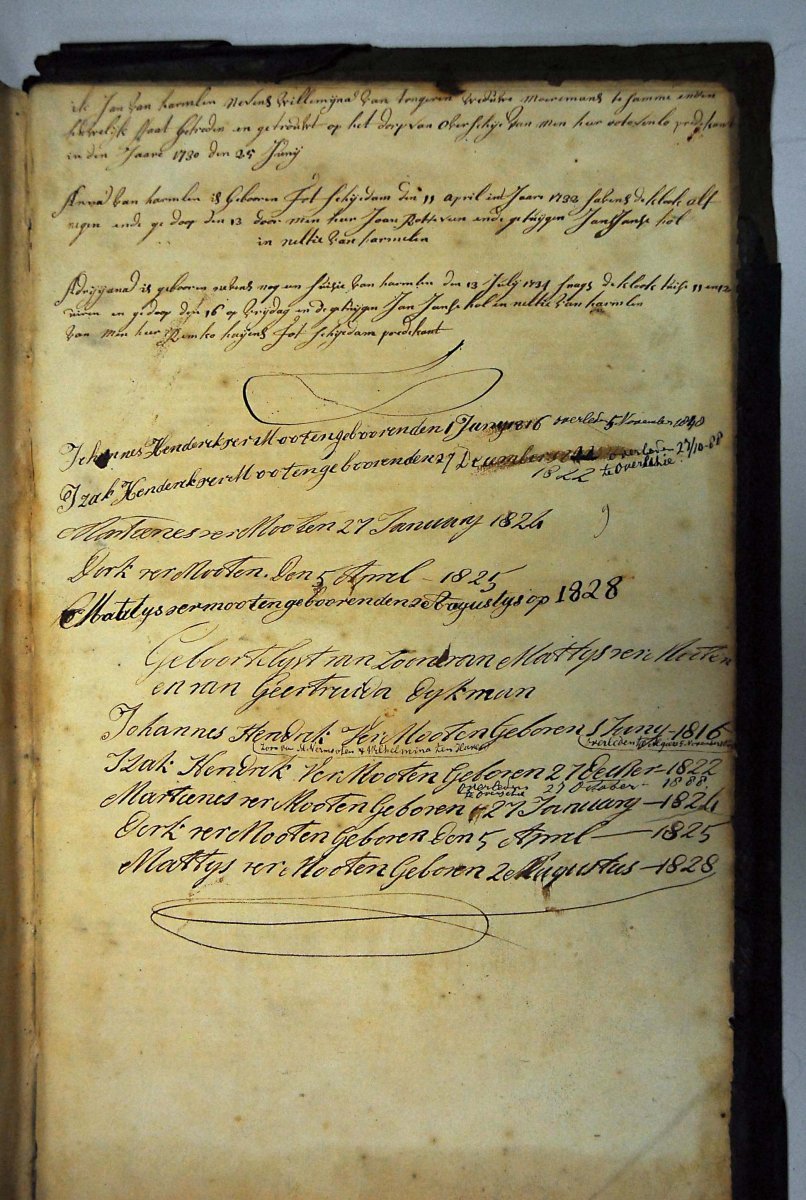 ik Jan van harmelen nevens Willemijna van tongeren weduwe moeremans te samme in den
houwelijk staat getreden en getrouwt op het dorp van Oberschije van mijn heer predikant
in den Jaare 1730 den 25 Junij
Anna van harmelen is gebooren tot Schijedam den 11 april in Jaare 1733 savens de klock alf
negen ende gedoop den 13 door mijn heer Joan ende getuijgen Jan Janse kol
in neltie van harmelen
Adrijana is gebooren nevens nog een susie van harmelen den 13 July 1734 snags de klock tusse 11 en 12
uren en gedoop den 16 op vrijdag ende getuijgen Jan Janse kol in neltie van harmelen
van mijn heer Remko tot Schijedam predikant
Johannes Henderek ver Mooten gebooren den 1 Juny 1816 overleden 5 November 1840
Izak Henderek ver Mooten gebooren den 27 December 1822 overleden 27/10-88
1822 te Overschie
Martienes ver Mooten 27 January 1824
Dirk ver Mooten Den 5 Aprel - 1825
Mattys vermooten gebooren den 2 Aagustys op 1828
Geboortelyst van zoons van Mattys ver Mooten
en van Geertruida Dykman
Johannes Hendrik Ver Mooten Geboren 1 Juny - 1816
zoon van M. Vermooten & Wilhelmina ten Haven overleden
Izak Hendrik Ver Mooten Geboren 27 Decber - 1822
overleden te Overschie 27 October - 1888.
Martienes ver Mooten Geboren 27 January - 1824
Dirk ver Mooten Geboren Den 5 Aprel - 1825
Mattys ver Mooten Geboren 2 Augustus - 1828